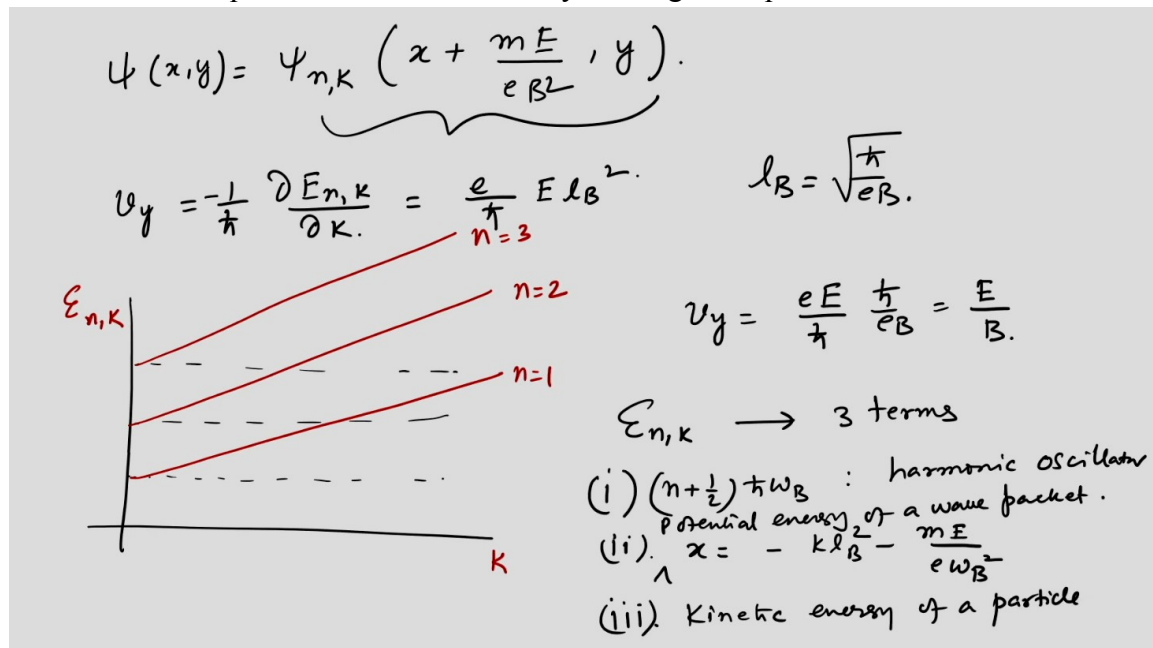 ψ(x,y) = ψ_{n,K} (x + mE/eB², y).
v_y = -1/ħ ∂E_{n,K}/∂K. = e/ħ E l_B².
l_B = √(ħ/eB).
n=3
n=2
n=1
ℰ_{n,K}
K
v_y = eE/ħ ħ/eB = E/B.
ℰ_{n,K} → 3 terms
(i) (n+1/2) ħω_B : harmonic oscillator
Potential energy of a wave packet.
(ii). ∧ x = - kl_B² - mE/eω_B²
(iii). Kinetic energy of a particle